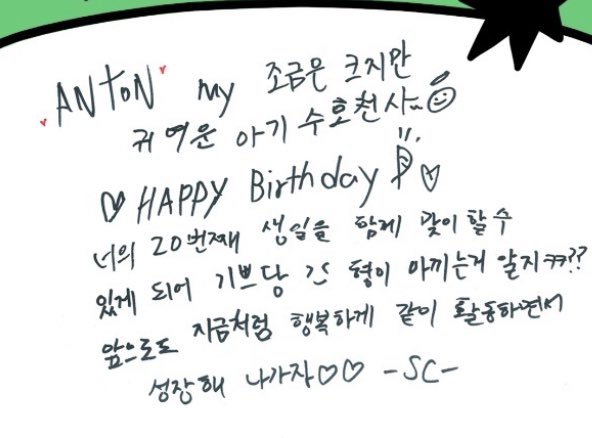 ANTON my 조금은 크지만
귀여운 아기 수호천사~
♡HAPPY Birthday ♡
너의 20번째 생일을 함께 맞이할 수
있게 되어 기쁘당 간 형이 아끼는거 알지ㅋㅋ??
앞으로도 지금처럼 행복하게 같이 활동하면서
성장해 나가자♡♡ -SC-